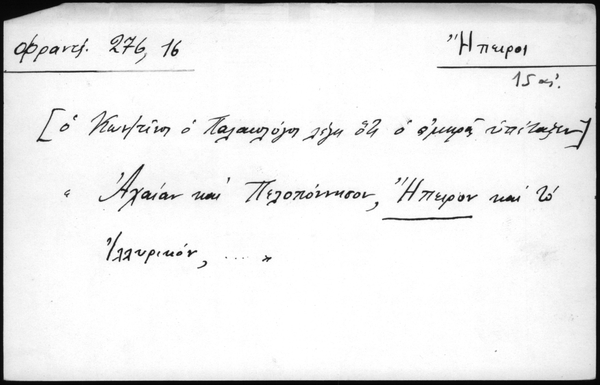 Φραντζ. 276, 16
Ἤπειρος
15 αἰ.
[ὁ Κων/τῖνος ὁ Παλαιολόγος λέγει ὅτι ὁ ἀμηρᾶς ὑπέταξεν]
" Ἀχαίαν καὶ Πελοπόννησον, Ἤπειρον καὶ τὸ
Ἰλλυρικόν, .... "